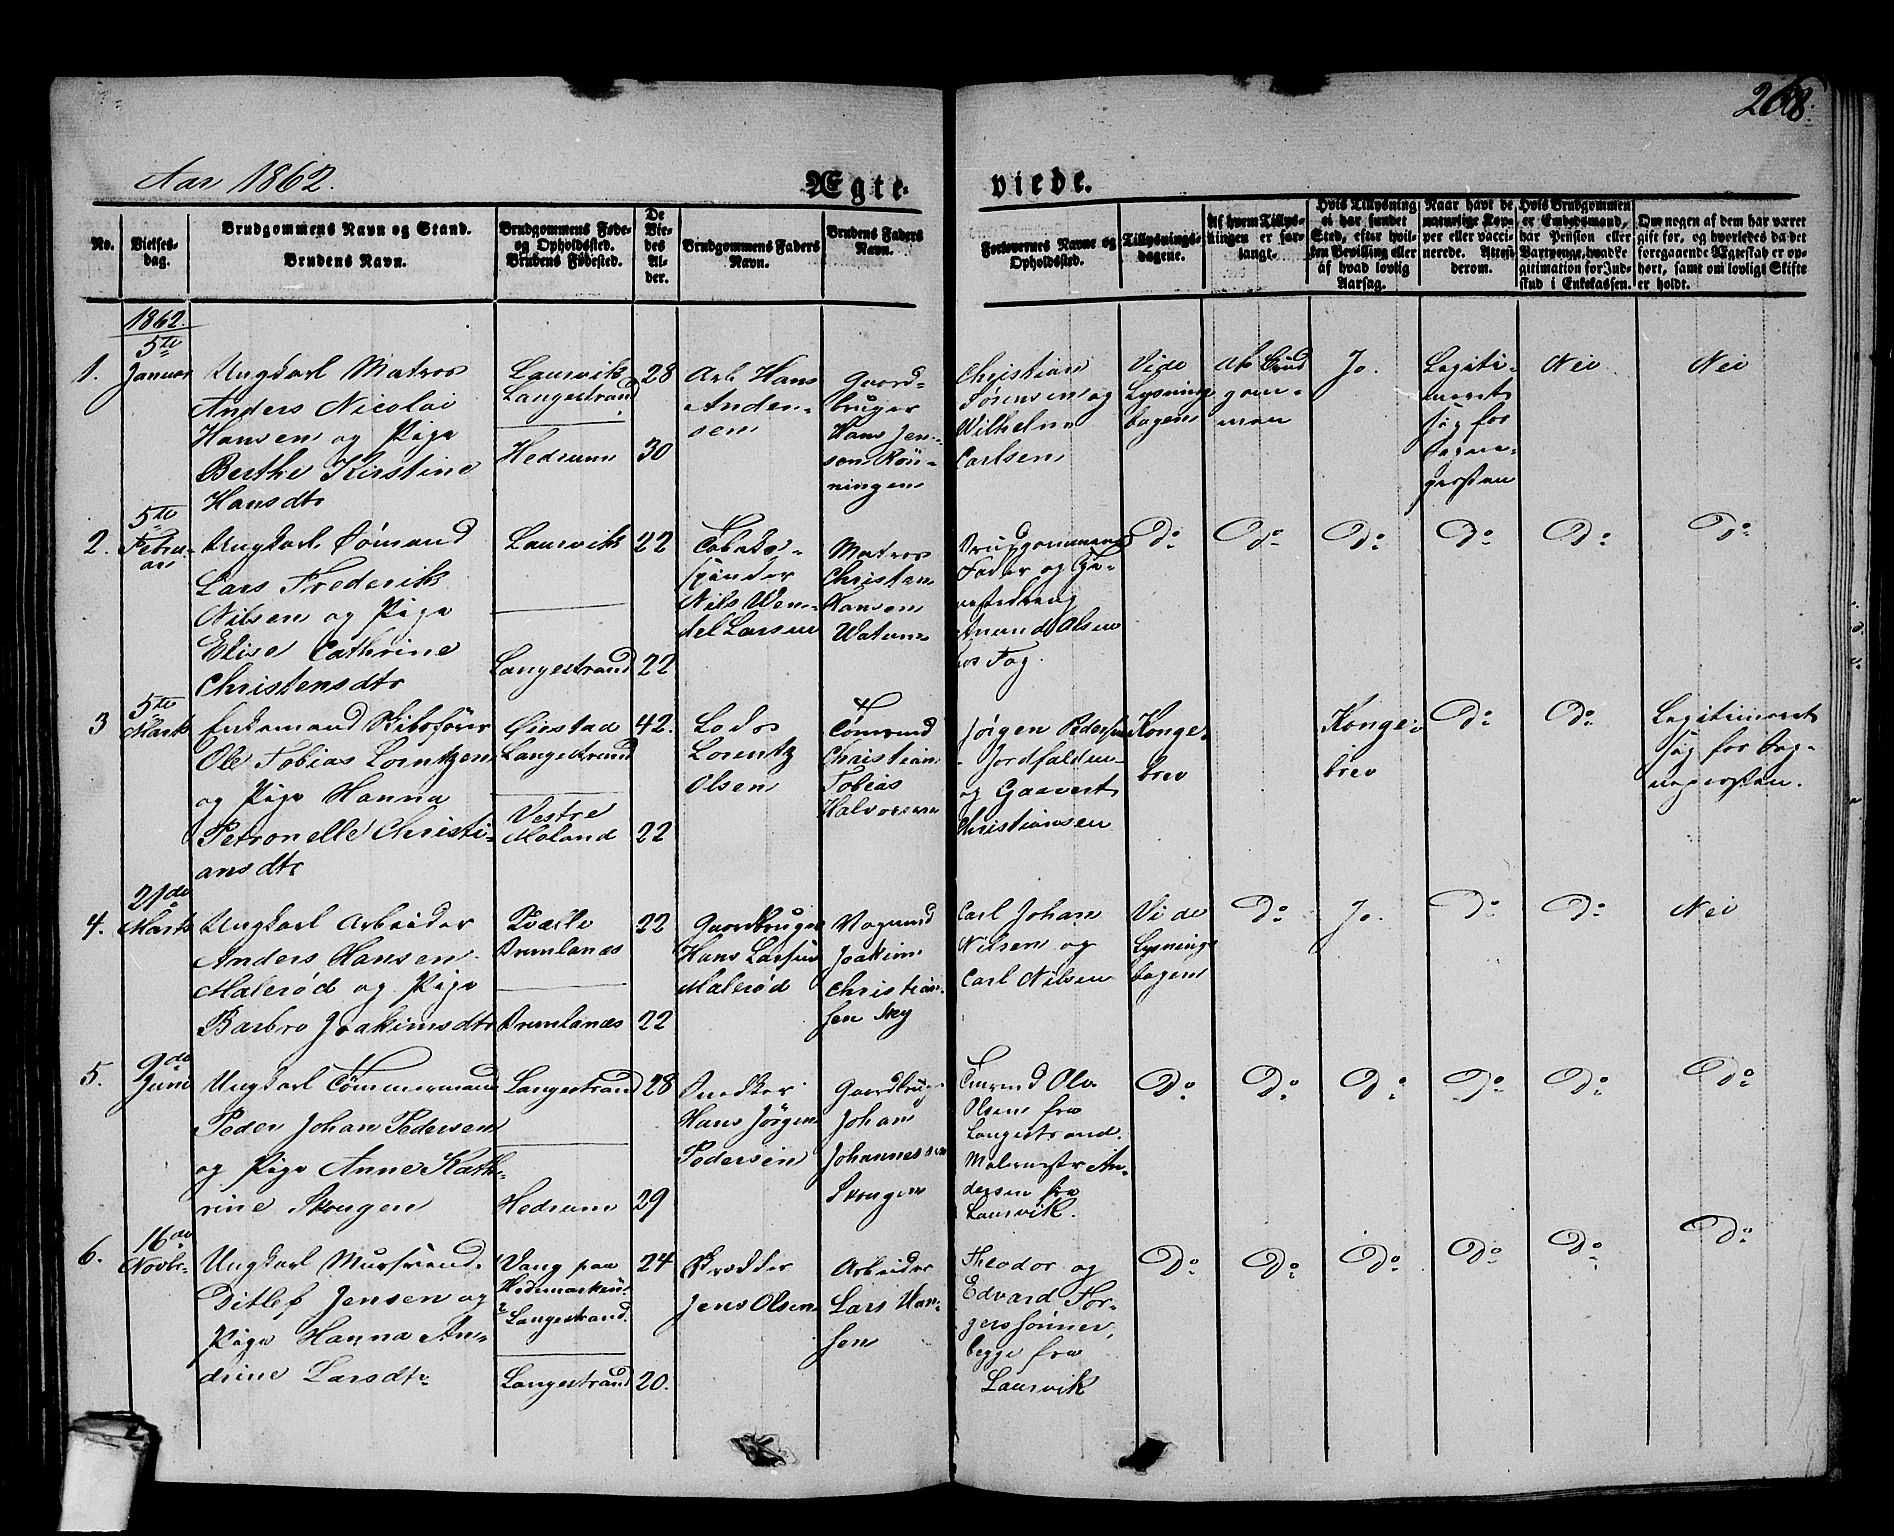 268.
Aar 1862.
Ægte-
viede.
No.
Vielses-
dag.
Brudgommens Navn og Stand.
Brudens Navn.
Brudgommens Føde-
og Opholdssted.
Brudens Fødested.
De
Vie-
des
Al-
der.
Brudgommens Faders
Navn.
Brudens Faders
Navn.
Forlovernes Navne og
Opholdssted.
Tillysnings-
dagene.
Af hvem Tillys-
ningen er for-
langt.
Hvis Tillysning
ei har fundet
Sted, efter hvil-
ken Bevilling eller
af hvad lovlig
Aarsag.
Naar havt de
naturlige Kop-
per eller vacci-
nerede. Attest
derom.
Hvis Brudgommen
er Embedsmand,
har Pension eller
Vartpenge, hvad Le-
gitimation for Ind-
skud i Enkekassen.
Om nogen af dem har været
gift før, og hvorledes da det
foregaaende Ægteskab er op-
hørt, samt om lovligt Skifte
er holdt.
1862.
1.
5te
Januar
Ungkarl Matros
Anders Nicolai
Hansen og Pige
Berthe Kirstine
Hansdtr
Laurvik
Langestrand
Hedrum
28
30
Arb. Hans
Ander-
sen
Gaard-
bruger
Hans Jen-
sen Røn-
ningen
Christian
Sørensen og
Wilhelm
Carlsen
Vide
Lysnings
bogen
Af Brud
gom-
men
Jo.
Legiti-
meret
sig for
2.
5te
Febru-
ar
Ungkarl Sømand
Lars Frederik
Nilsen og Pige
Elise Cathrine
Christensdtr
Laurvik
Langestrand
22
22
Tobaks-
spinder
Nils Wen-
del Larsen
Matros
Christen
Hansen
Watne
Brudgommens
Fader og
Amund Olsen
hos Fog.
Do
Do
Do
Do
Do
Do
3
5te
Marts
Enkemand Skibsfører
Ole Tobias Lorentzen
og Pige Hanna
Petronelle Christi-
ansdtr
Øiestad
Langestrand
Vestre
Moland
42.
22
Lods
Lorentz
Olsen
Tømmd
Christian
Tobias
Halvorsen
Jørgen Pedersen
Jordfalden
og Gaavert
Christiansen
Konge-
brev
Konge-
brev
Do
Do
Legitimeret
sig for
4.
21de
Marts
Ungkarl Arbeider
Anders Hansen
Malerød og Pige
Barbro Joakimsdtr
Qvælle
Brunlanæs
Brunlanæs
22
22
Gaardbruger
Hans Larsen
Malerød
Vognmd
Joakim
Christian-
sen Sky
Carl Johan
Nilsen og
Carl Nilsen
Vide
Lysnings
bogen
Do
Jo.
Do
Do
Nei
5.
9de
Juni
Ungkarl Tømmermand
Peder Johan Pedersen
og Pige Anne Kath-
rine Skougen
Langestrand
Hedrum
28
29
Snedker
Hans Jørgen
Pedersen
Gaardbrug.
Johan
Johannessen
Skougen
Tømmd Ole
Olsen fra
Langestrand.
Malermstr An-
dersen fra
Laurvik.
Do
Do
Do
Do
Do
Do
6.
16de
Novbr.
Ungkarl Mursvend
Ditlef Jensen og
Pige Hanna An-
drine Larsdtr
Vang paa
Hedemarken
Langestrand.
Langestrand
24
20.
Skrædder
Jens Olsen
Arbeider
Lars Han-
sen
Theodor og
Edvard Tor-
gersønner,
begge fra
Laurvik
Do
Do
Do
Do
Do
Do
Nei
Nei